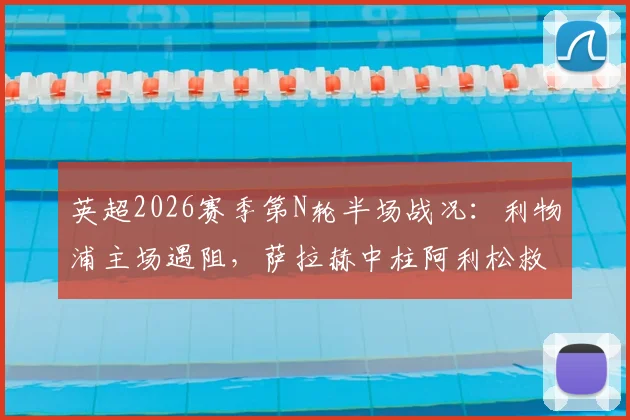 英超2026赛季第N轮半场战况：利物
浦主场遇阻，萨拉赫中柱阿利松救